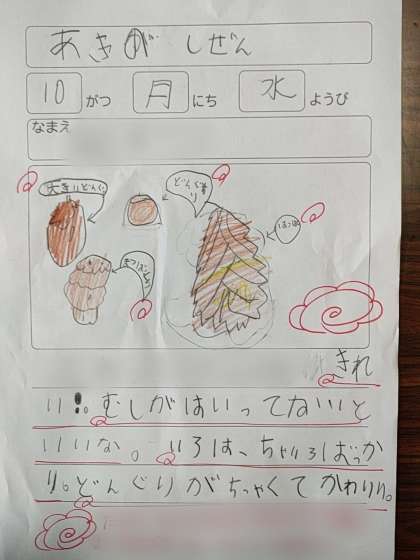 あきのしぜん
10 がつ 月 にち 水 ようび
なまえ
大きいどんぐり
どんぐり
はっぱ
きれ
い!。むしがはいってないいと
いいな。いろは、ちゃいろばっか
り。どんぐりがちっちゃくてかわいい。